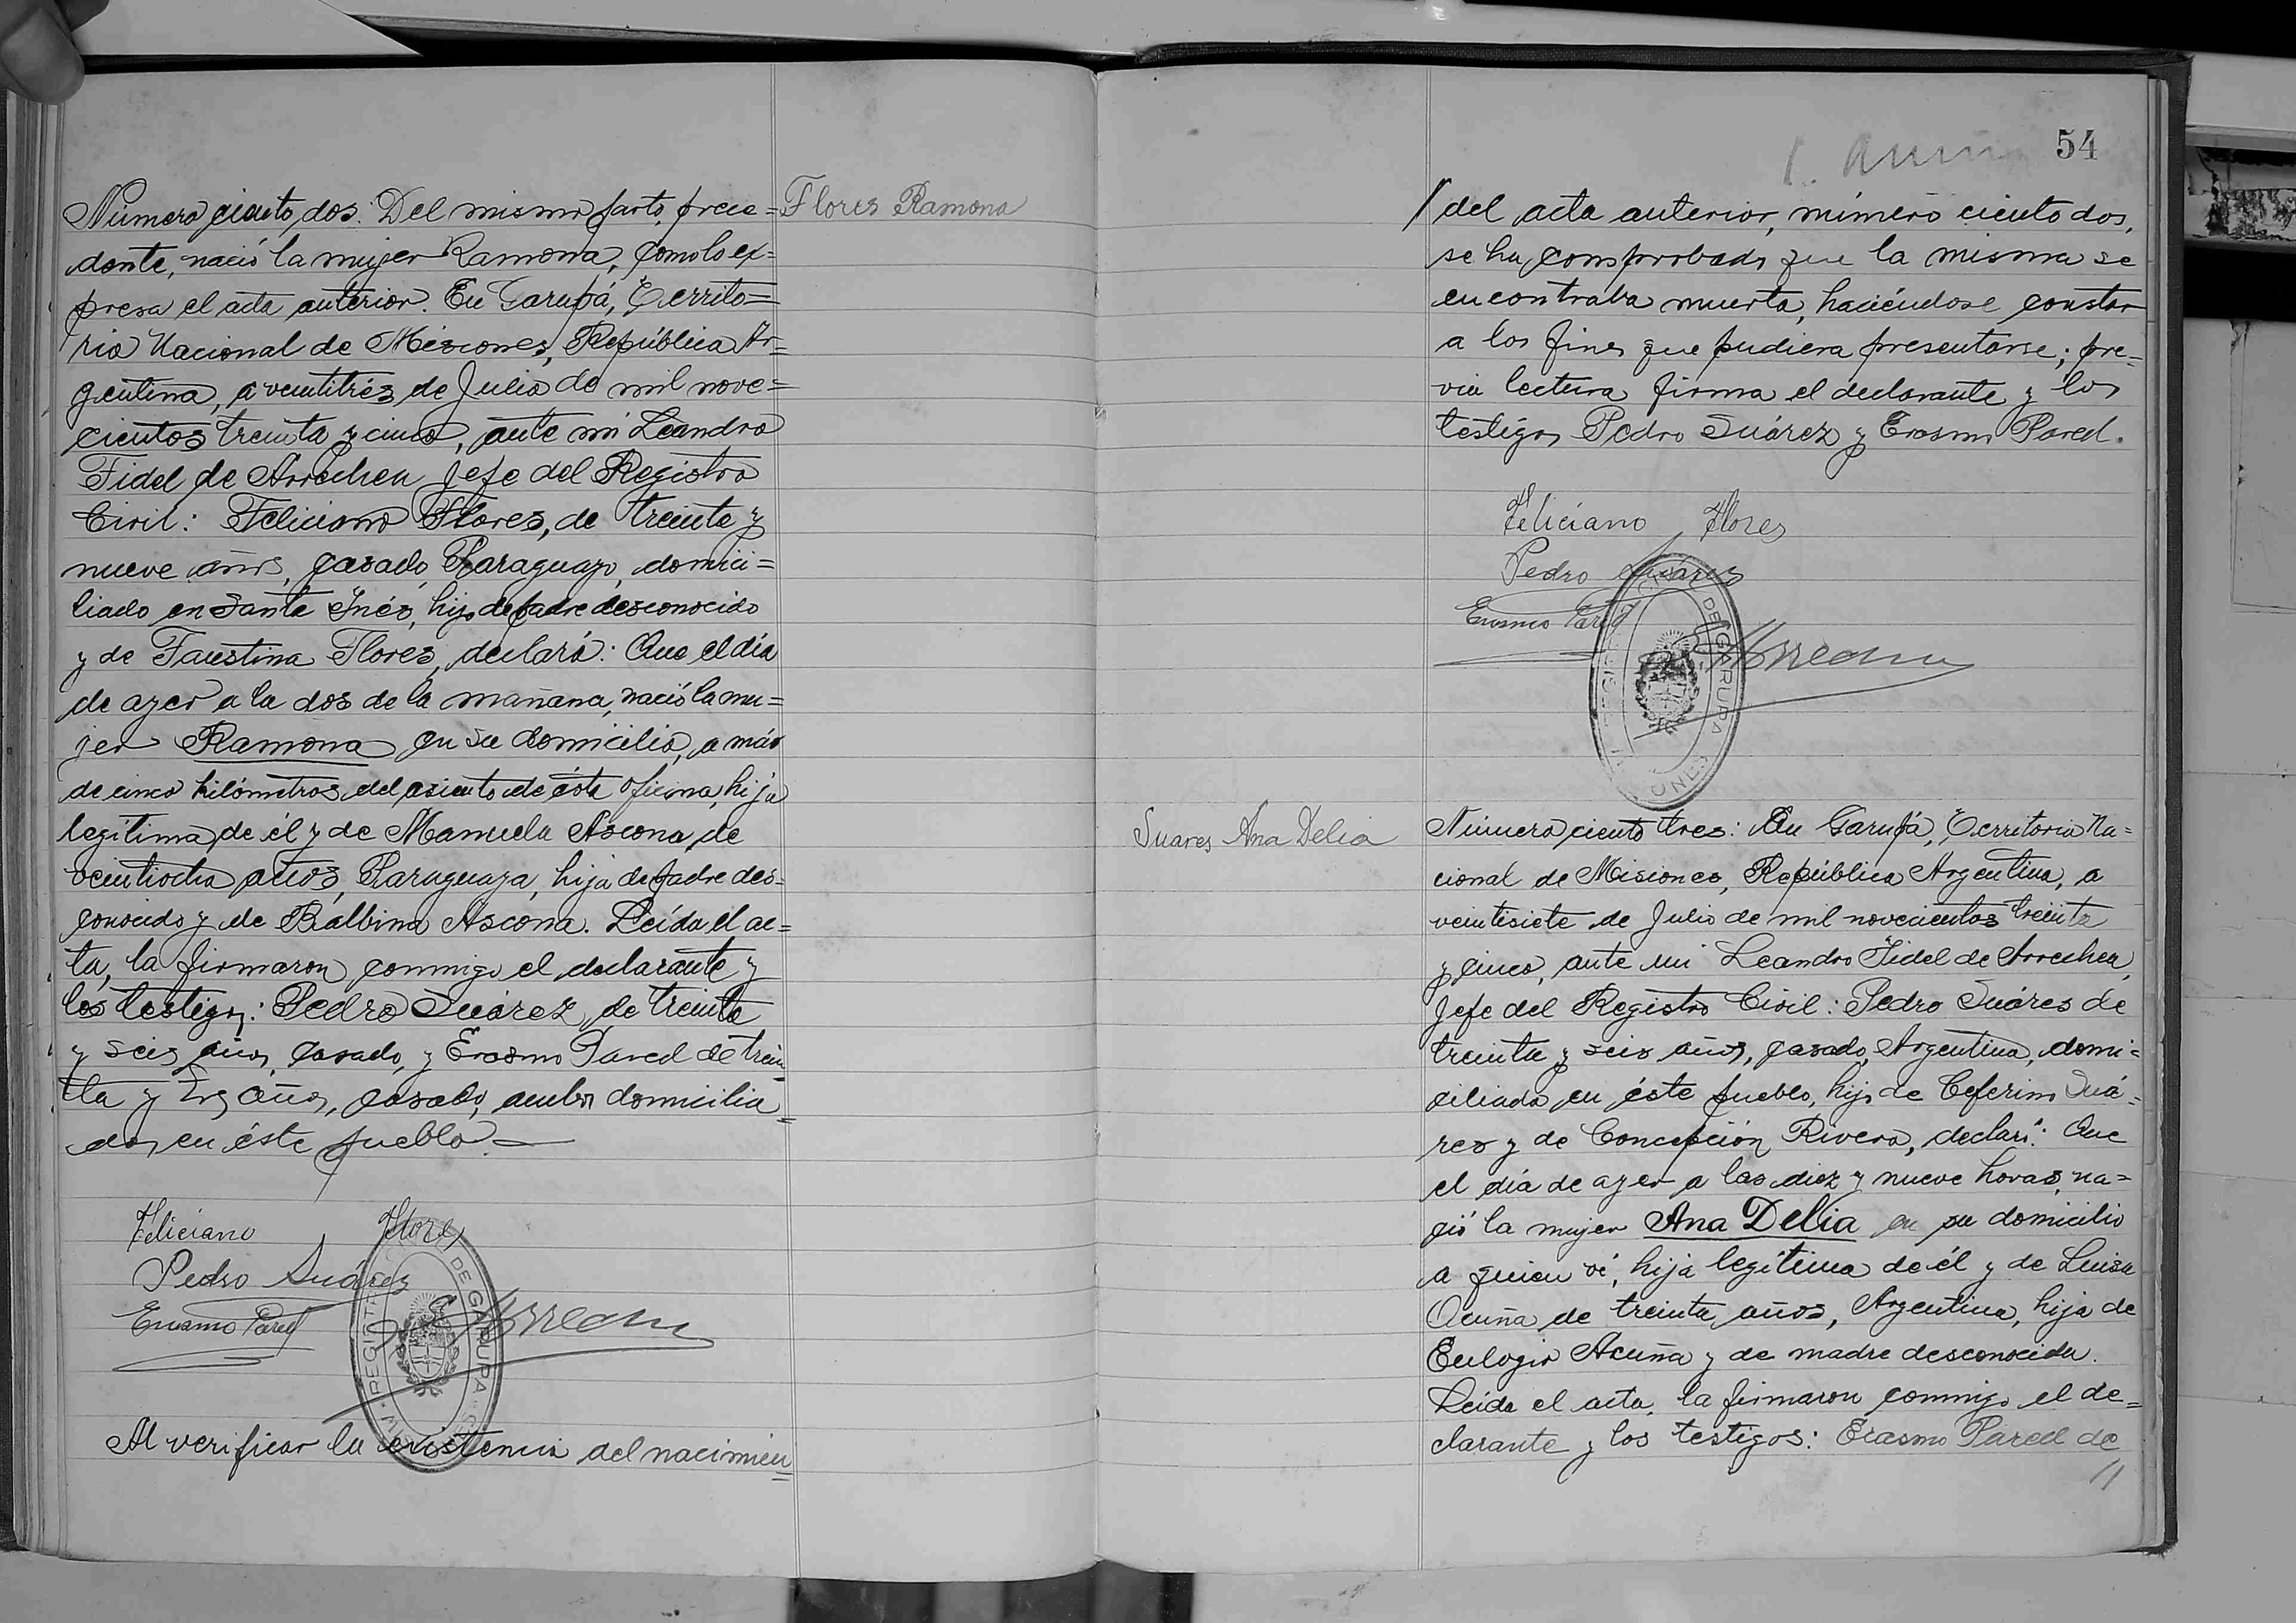 Número ciento dos: Del mismo parto, prece=
dente, nació la mujer Ramona, como lo ex=
presa el acta anterior. En Garupá, Territo=
rio Nacional de Misiones, República Ar=
gentina, a veintitrés de Julio de mil nove=
cientos treinta y cinco, ante mi Leandro
Fidel de Arrechea Jefe del Registro
Civil: Feliciano Flores, de treinta y
nueve años, casado, Paraguayo, domici=
liado en Santa Inés, hijo de padre desconocido
y de Faustina Flores, declaró: Que el día
de ayer a la dos de la mañana, nació la mu=
jer Ramona en su domicilio, a más
de cinco kilómetros del asiento de ésta oficina, hija
legítima de él y de Manuela Ascona, de
veintiocho años, Paraguaya, hija de padre des=
conocido y de Balbina Ascona. Leída el ac=
ta, la firmaron conmigo el declarante y
los testigos: Pedro Suárez, de treinta
y seis años, casado, y Erasmo Pared de trein
ta y tres años, casado, ambos domicilia=
dos en éste pueblo.
Feliciano Flores
Pedro Suárez
Erasmo Pared
Arrechea
REGISTRO DE GARUPA
Al verificar la existencia del nacimien=
Flores Ramona
54
/ del acta anterior, número ciento dos,
se ha comprobado que la misma se
encontraba muerta, haciéndose constar
a los fines que pudiera presentarse; pre=
via lectura firma el declarante y los
testigos Pedro Suárez y Erasmo Pared.
Feliciano Flores
Pedro Suárez
Erasmo Pared
Arrechea
DE GARUPA
Suares Ana Delia
Número ciento tres: En Garupá, Territorio Na=
cional de Misiones, República Argentina, a
veintisiete de Julio de mil novecientos treinta
y cinco, ante mi Leandro Fidel de Arrechea,
Jefe del Registro Civil: Pedro Suáres de
treinta y seis años, casado, Argentina, domi=
ciliado en éste pueblo, hijo de Ceferino Suá=
res y de Concepción Rivero, declaró: Que
el día de ayer a las diez y nueve horas, na=
ció la mujer Ana Delia en su domicilio
a quien ví, hija legítima de él y de Luisa
Acuña de treinta años, Argentina, hija de
Eulogio Acuña y de madre desconocida.
Leída el acta, la firmaron conmigo el de=
clarante y los testigos: Erasmo Pared de
//